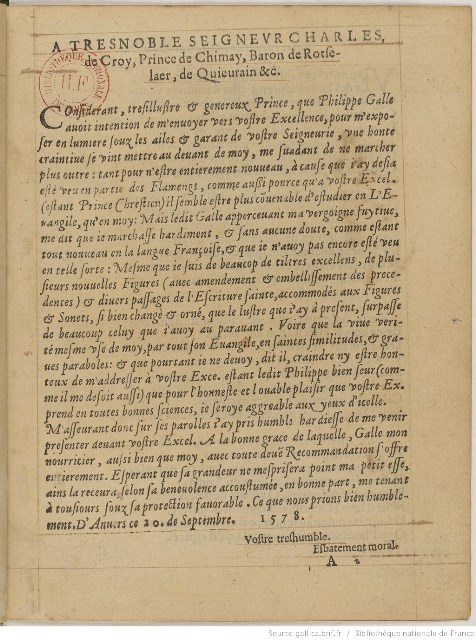 A TRESNOBLE SEIGNEVR CHARLES,
de Croy, Prince de Chimay, Baron de Rotse-
laer, de Quieurain &c.
COnsiderant, tresillustre & genereux Prince, que Philippe Galle
auoit intention de m'enuoyer vers vostre Excellence, pour m'expo-
ser en lumiere souz les ailes & garant de vostre Seigneurie, vne honte
craintiue se vint mettre au deuant de moy, me suadant de ne marcher
plus outre: tant pour n'estre entierement nouueau, à cause que i'ay desia
esté veu en partie des Flamengs, comme aussi pource qu'a vostre Excel.
(estant Prince Chrestien) il semble estre plus cõuenable d'estudier en L'E-
uangile, qu'en moy: Mais ledit Galle apperceuant ma vergoigne fuytiue,
me dit que ie marchasse hardiment, & sans aucune doute, comme estant
tout nouueau en la langue Françoise, & que ie n'auoy pas encore esté veu
en telle sorte: Mesme que ie suis de beaucop de tiltres excellens, de plu-
sieurs nouuelles Figures (auec amendement & embellissement des prece-
dentes) & diuers passages de l'Escriture sainte, accommodés aux Figures
& Sonets, si bien changé & orné, que le lustre que i'ay à present, surpasse
de beaucop celuy que i'auoy au parauant. Voire que la viue veri-
té mesme vse de moy, par tout son Euangile, en saintes similitudes, & gra-
ues paraboles: & que pourtant ie ne deuoy, dit il, craindre ny estre hon-
teux de m'addresser à vostre Exce. estant ledit Philippe bien seur (com-
me il me desoit aussi) que pour l'honneste et louable plaisir que vostre Ex.
prend en toutes bonnes sciences, ie seroye aggreable aux yeux d'icelle.
M'asseurant donc sur ses parolles i'ay pris humble hardiesse de me venir
presenter deuant vostre Excel. A la bonne grace de laquelle, Galle mon
nourricier, aussi bien que moy, auec toute deuë Recommandation s'offre
entierement. Esperant que sa grandeur ne mesprisera point ma petitesse,
ains la receura, selon sa beneuolence accoustumée, en bonne part, me tenant
à tousiours souz sa protection fauorable. Ce que nous prions bien humble-
ment, D'Anuers ce 20. de Septembre. 1578.
Vostre treshumble.
Esbatement moral.
A 2
Source gallica.bnf.fr / Bibliothèque nationale de France